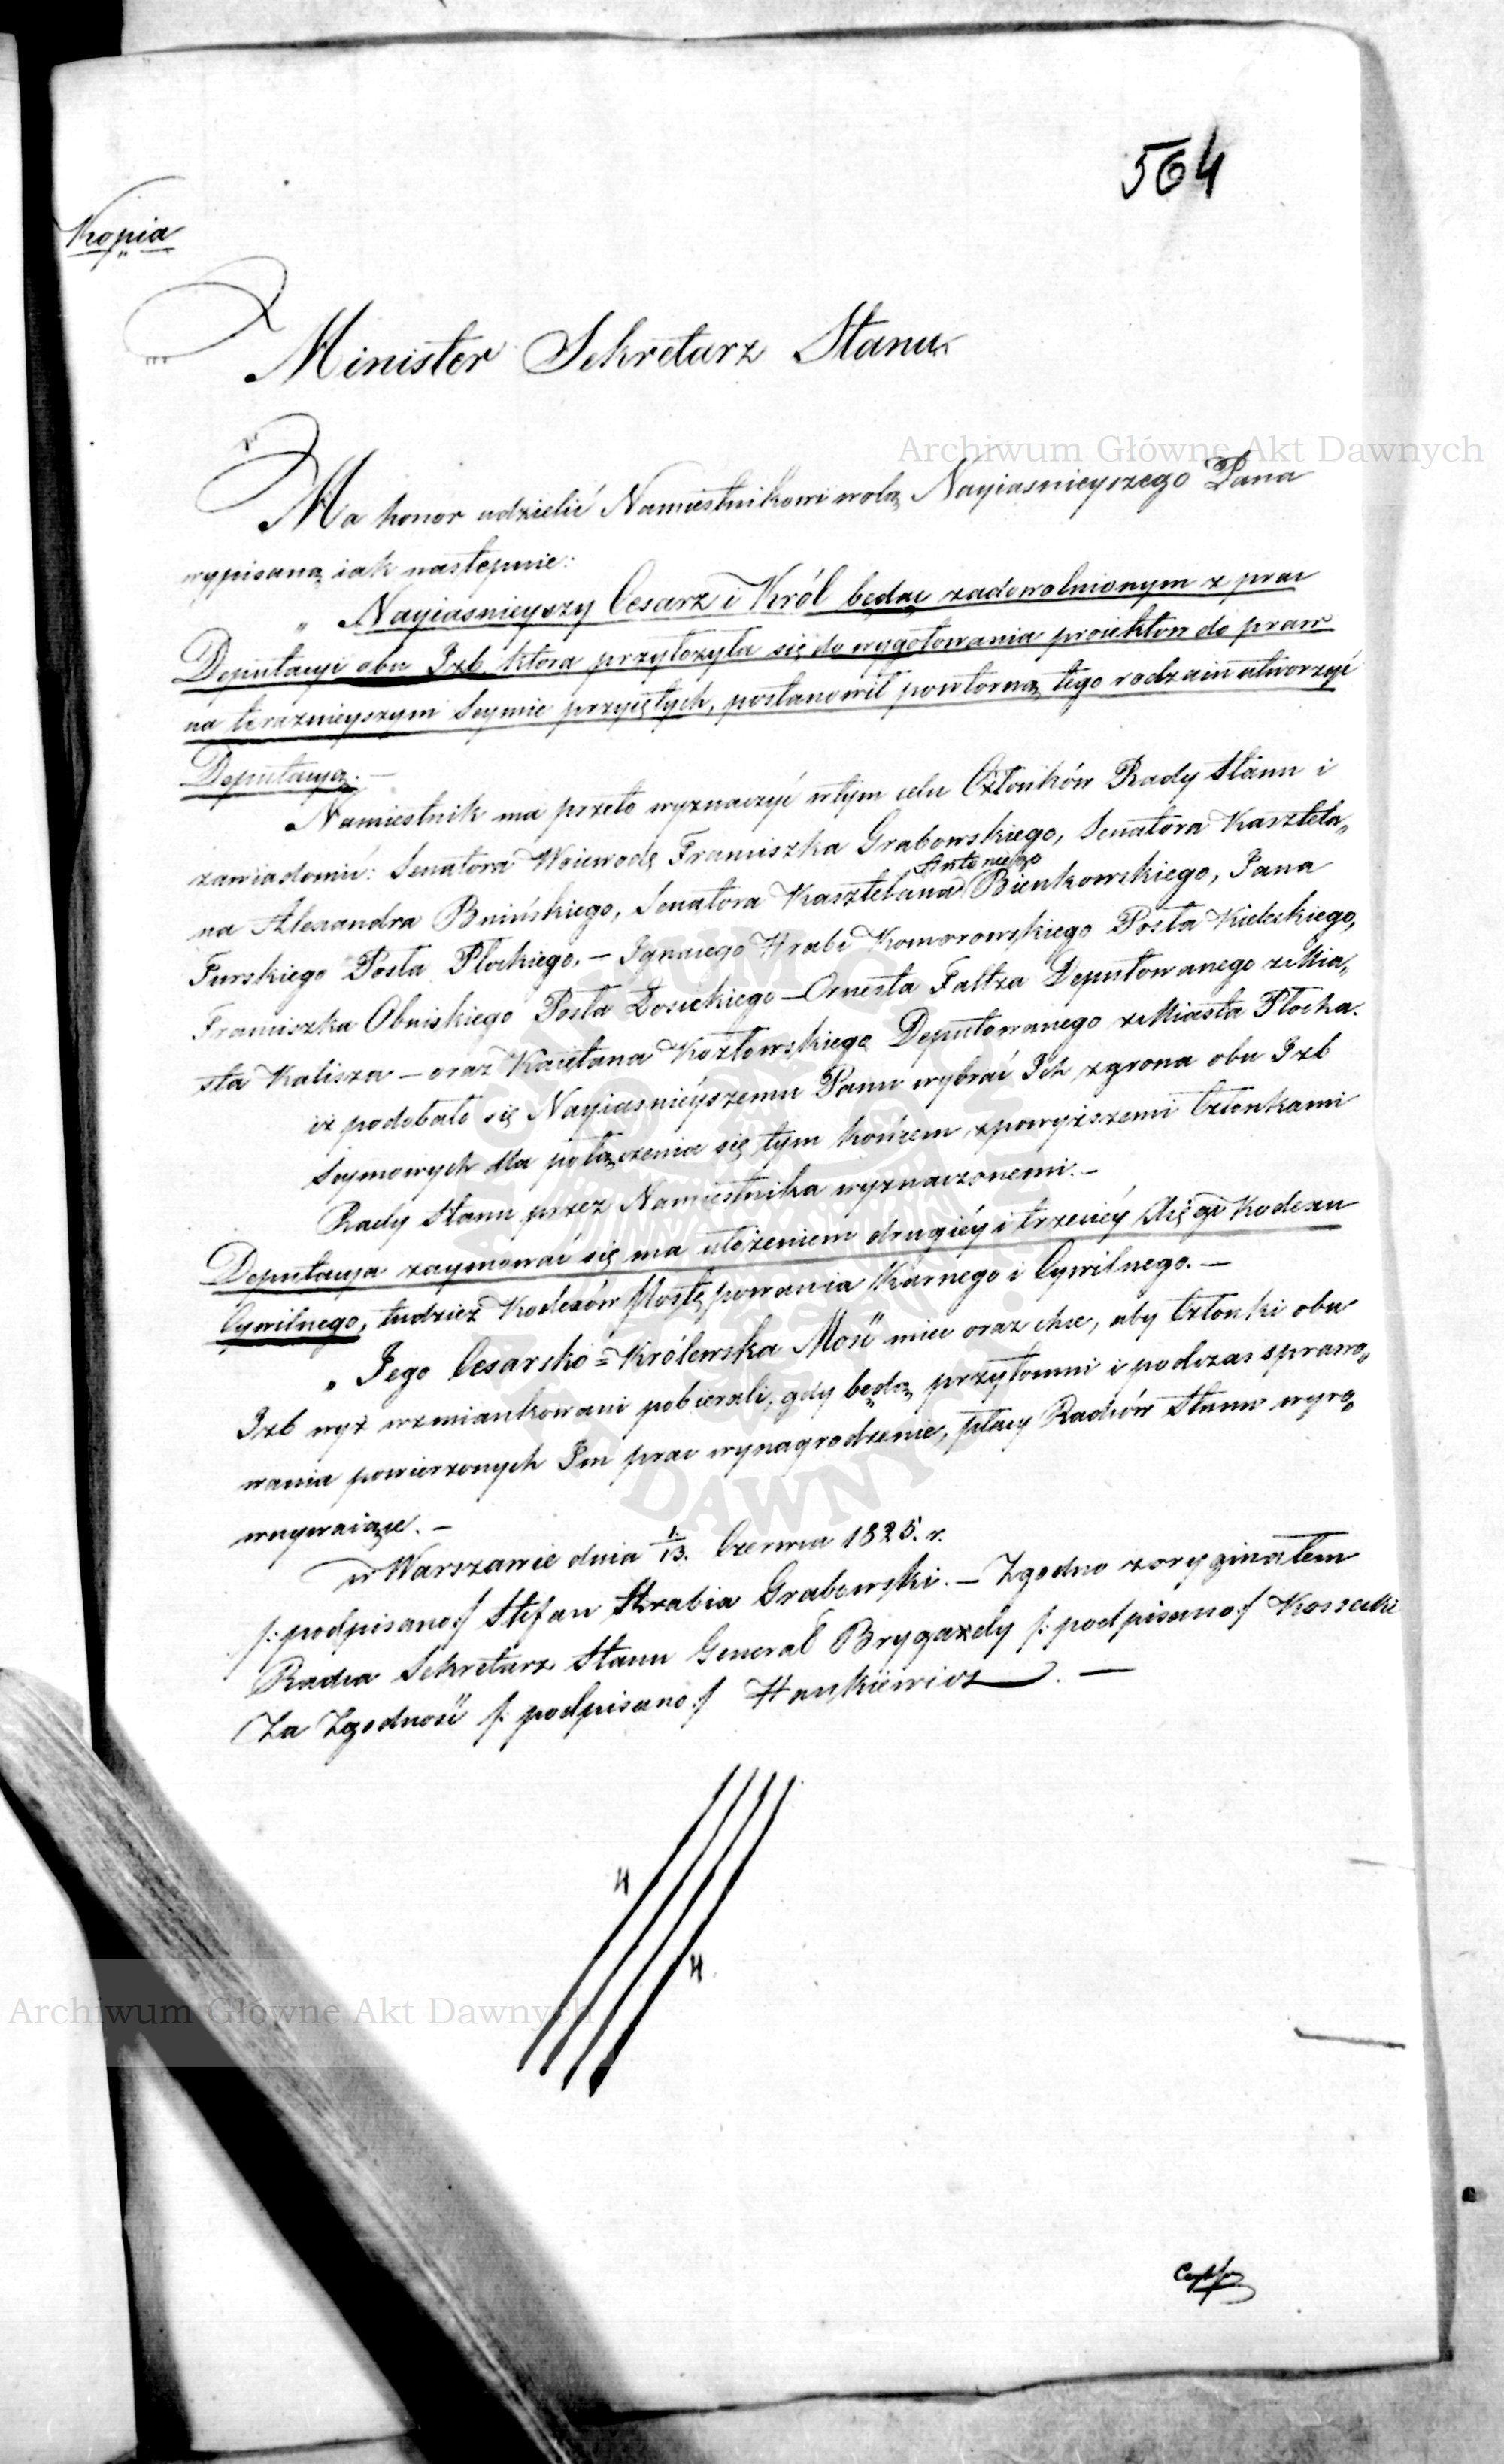 564
Kopia
Minister Sekretarz Stanu
Archiwum Główne Akt Dawnych
Ma honor udzielić Namiestnikowi wolą Nayiasnieyszego Pana
wypisaną iak następnie:
„ Nayiasnieyszy Cesarz i Król będąc zadowolnionym z prac
Deputacyi obu Izb która przyłożyła się do wygotowania proiektow do praw
na terazniejszym Seymie przyiętych, postanowił powtorną tego rodzaiu utworzyć
Deputacyą. —
Namiestnik ma przeto wyznaczyć wtym celu Członków Rady Stanu i
zawiadomić: Senatora Woiewodę Franciszka Grabowskiego, Senatora Kasztela„
Antoniego
na Alexandra Bnińskiego, Senatora Kasztelana Bienkowskiego, Pana
Turskiego Posła Płockiego, — Ignacego Hrabi Komorowskiego Posła Kieleckiego,
Franciszka Obniskiego Posła Łosickiego — Ernesta Faltza Deputowanego z Mia„
sta Kalisza — oraz Kaietana Kozłowskiego Deputowanego z Miasta Płocka.
iż podobało się Nayiasnieyszemu Panu wybrać Ich zgrona obu Izb
Seymowych dla połączenia się tym końcem, zpowyższemi Członkami
Rady Stanu przez Namiestnika wyznaczonemi. —
Deputacya zaymować się ma ułożeniem drugiéy i trzeciéy Xięgi Kodexu
Cywilnego, tudzież Kodexów Postępowania Karnego i Cywilnego. —
„ Jego Cesarsko = Królewska Mość mieć oraz chce, aby Członki obu
Izb wyż wzmiankowani pobierali, gdy będą przytomni i podczas sprawo„
wania powierzonych Im prac wynagrodzenie, płacy Radców Stanu wyro„
wnywaiące. —
w Warszawie dnia 1./13. Czerwca 1825. r.
/: podpisano :/ Stefan Hrabia Grabowski. — Zgodno z oryginałem
Radca Sekretarz Stanu Generał Brygady /: podpisano :/ Kossecki
Za Zgodność /: podpisano :/ Hankiewicz. —
Archiwum Główne Akt Dawnych